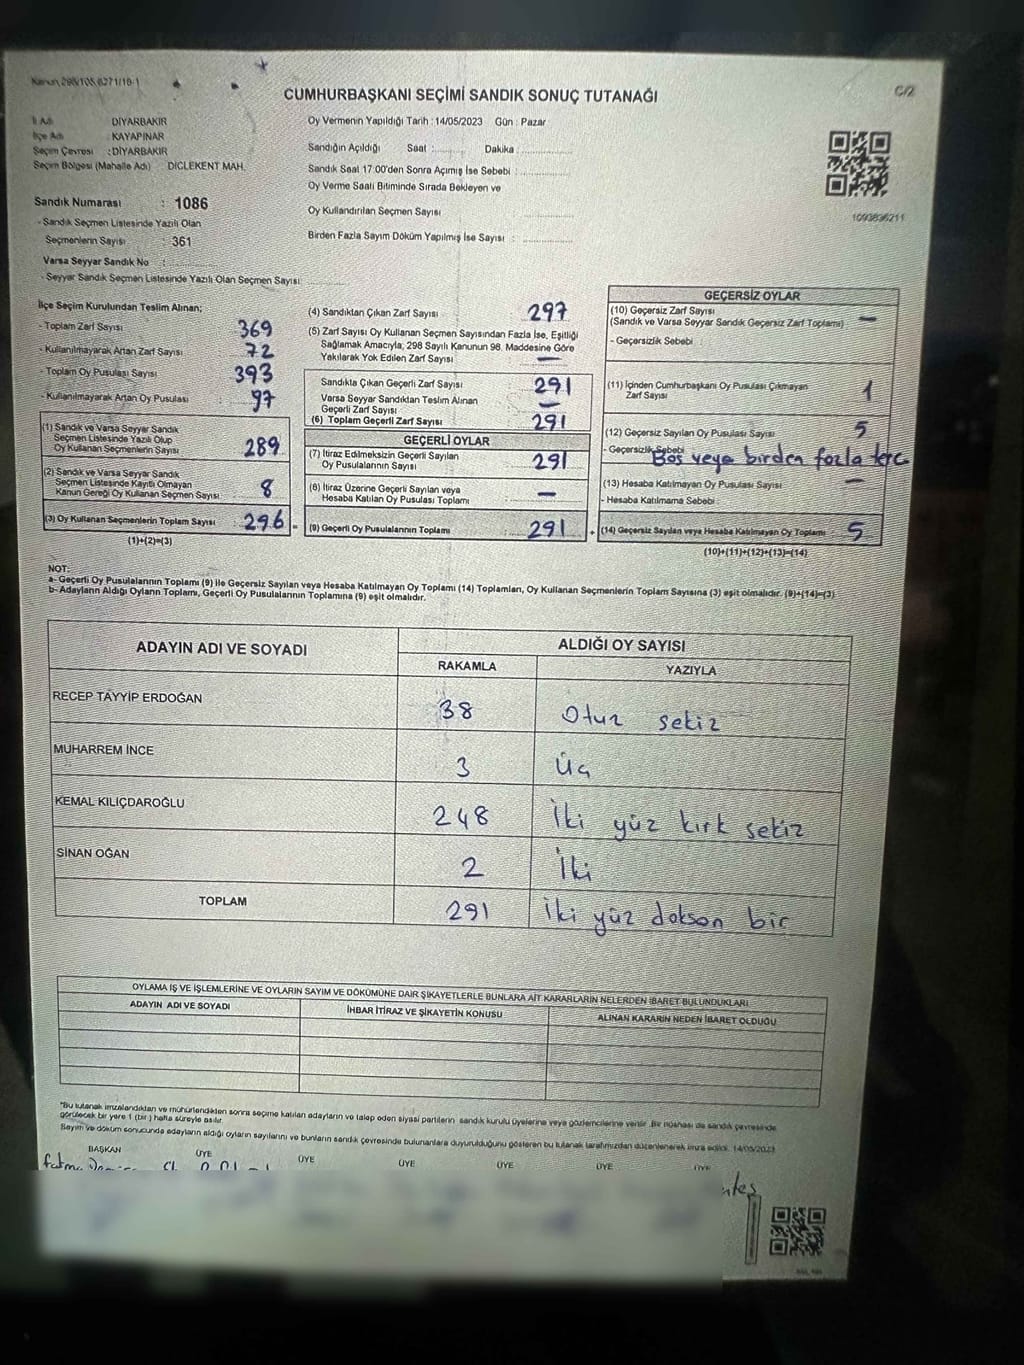 Kanun 298/105,6271/18-1
C/2
CUMHURBAŞKANI SEÇİMİ SANDIK SONUÇ TUTANAĞI
İl Adı DİYARBAKIR
İlçe Adı KAYAPINAR
Seçim Çevresi :DİYARBAKIR
Seçim Bölgesi (Mahalle Adı) DİCLEKENT MAH.
Sandık Numarası : 1086
- Sandık Seçmen Listesinde Yazılı Olan
Seçmenlerin Sayısı : 361
Varsa Seyyar Sandık No :
- Seyyar Sandık Seçmen Listesinde Yazılı Olan Seçmen Sayısı:
Oy Vermenin Yapıldığı Tarih : 14/05/2023 Gün : Pazar
Sandığın Açıldığı Saat : Dakika :
Sandık Saat 17:00'den Sonra Açımış İse Sebebi :
Oy Verme Saati Bitiminde Sırada Bekleyen ve
Oy Kullandırılan Seçmen Sayısı
Birden Fazla Sayım Döküm Yapılmış İse Sayısı :
1093836211
İlçe Seçim Kurulundan Teslim Alınan;
- Toplam Zarf Sayısı 369
- Kullanılmayarak Artan Zarf Sayısı 72
- Toplam Oy Pusulası Sayısı 393
- Kullanılmayarak Artan Oy Pusulası 97
(1) Sandık ve Varsa Seyyar Sandık
Seçmen Listesinde Yazılı Olup
Oy Kullanan Seçmenlerin Sayısı 289
(2) Sandık ve Varsa Seyyar Sandık
Seçmen Listesinde Kayıtlı Olmayan
Kanun Gereği Oy Kullanan Seçmen Sayısı 8
(3) Oy Kullanan Seçmenlerin Toplam Sayısı : 296 =
(1)+(2)=(3)
(4) Sandıktan Çıkan Zarf Sayısı 297
(5) Zarf Sayısı Oy Kullanan Seçmen Sayısından Fazla İse, Eşitliği
Sağlamak Amacıyla, 298 Sayılı Kanunun 98. Maddesine Göre
Yakılarak Yok Edilen Zarf Sayısı —
Sandıkta Çıkan Geçerli Zarf Sayısı 291
Varsa Seyyar Sandıktan Teslim Alınan
Geçerli Zarf Sayısı —
(6) Toplam Geçerli Zarf Sayısı 291
GEÇERLİ OYLAR
(7) İtiraz Edilmeksizin Geçerli Sayılan
Oy Pusulalarının Sayısı 291
(8) İtiraz Üzerine Geçerli Sayılan veya
Hesaba Katılan Oy Pusulası Toplamı —
(9) Geçerli Oy Pusulalarının Toplamı 291 +
GEÇERSİZ OYLAR
(10) Geçersiz Zarf Sayısı
(Sandık ve Varsa Seyyar Sandık Geçersiz Zarf Toplamı) —
- Geçersizlik Sebebi :
(11) İçinden Cumhurbaşkanı Oy Pusulası Çıkmayan
Zarf Sayısı 1
(12) Geçersiz Sayılan Oy Pusulası Sayısı 5
- Geçersizlik Sebebi Boş veya birden fazla terc
(13) Hesaba Katılmayan Oy Pusulası Sayısı —
- Hesaba Katılmama Sebebi :
(14) Geçersiz Sayılan veya Hesaba Katılmayan Oy Toplamı : 5
(10)+(11)+(12)+(13)=(14)
NOT:
a- Geçerli Oy Pusulalarının Toplamı (9) ile Geçersiz Sayılan veya Hesaba Katılmayan Oy Toplamı (14) Toplamları, Oy Kullanan Seçmenlerin Toplam Sayısına (3) eşit olmalıdır. (9)+(14)=(3)
b- Adayların Aldığı Oyların Toplamı, Geçerli Oy Pusulalarının Toplamına (9) eşit olmalıdır.
ADAYIN ADI VE SOYADI ALDIĞI OY SAYISI
RAKAMLA YAZIYLA
RECEP TAYYİP ERDOĞAN 38 Otuz sekiz
MUHARREM İNCE 3 Üç
KEMAL KILIÇDAROĞLU 248 İki yüz kırk sekiz
SİNAN OĞAN 2 İki
TOPLAM 291 İki yüz dokson bir
OYLAMA İŞ VE İŞLEMLERİNE VE OYLARIN SAYIM VE DÖKÜMÜNE DAİR ŞİKAYETLERLE BUNLARA AİT KARARLARIN NELERDEN İBARET BULUNDUKLARI
ADAYIN ADI VE SOYADI İHBAR İTİRAZ VE ŞİKAYETİN KONUSU ALINAN KARARIN NEDEN İBARET OLDUĞU
"Bu tutanak imzalandıktan ve mühürlendikten sonra seçime katılan adayların ve talep eden siyasi partilerin sandık kurulu üyelerine veya gözlemcilerine verilir. Bir nüshası da sandık çevresinde
görülecek bir yere 1 (bir ) hafta süreyle asılır.
Sayım ve döküm sonucunda adayların aldığı oyların sayılarını ve bunların sandık çevresinde bulunanlara duyurulduğunu gösteren bu tutanak tarafımızdan düzenlenerek imza edildi. 14/05/2023
BAŞKAN ÜYE ÜYE ÜYE ÜYE ÜYE ÜYE